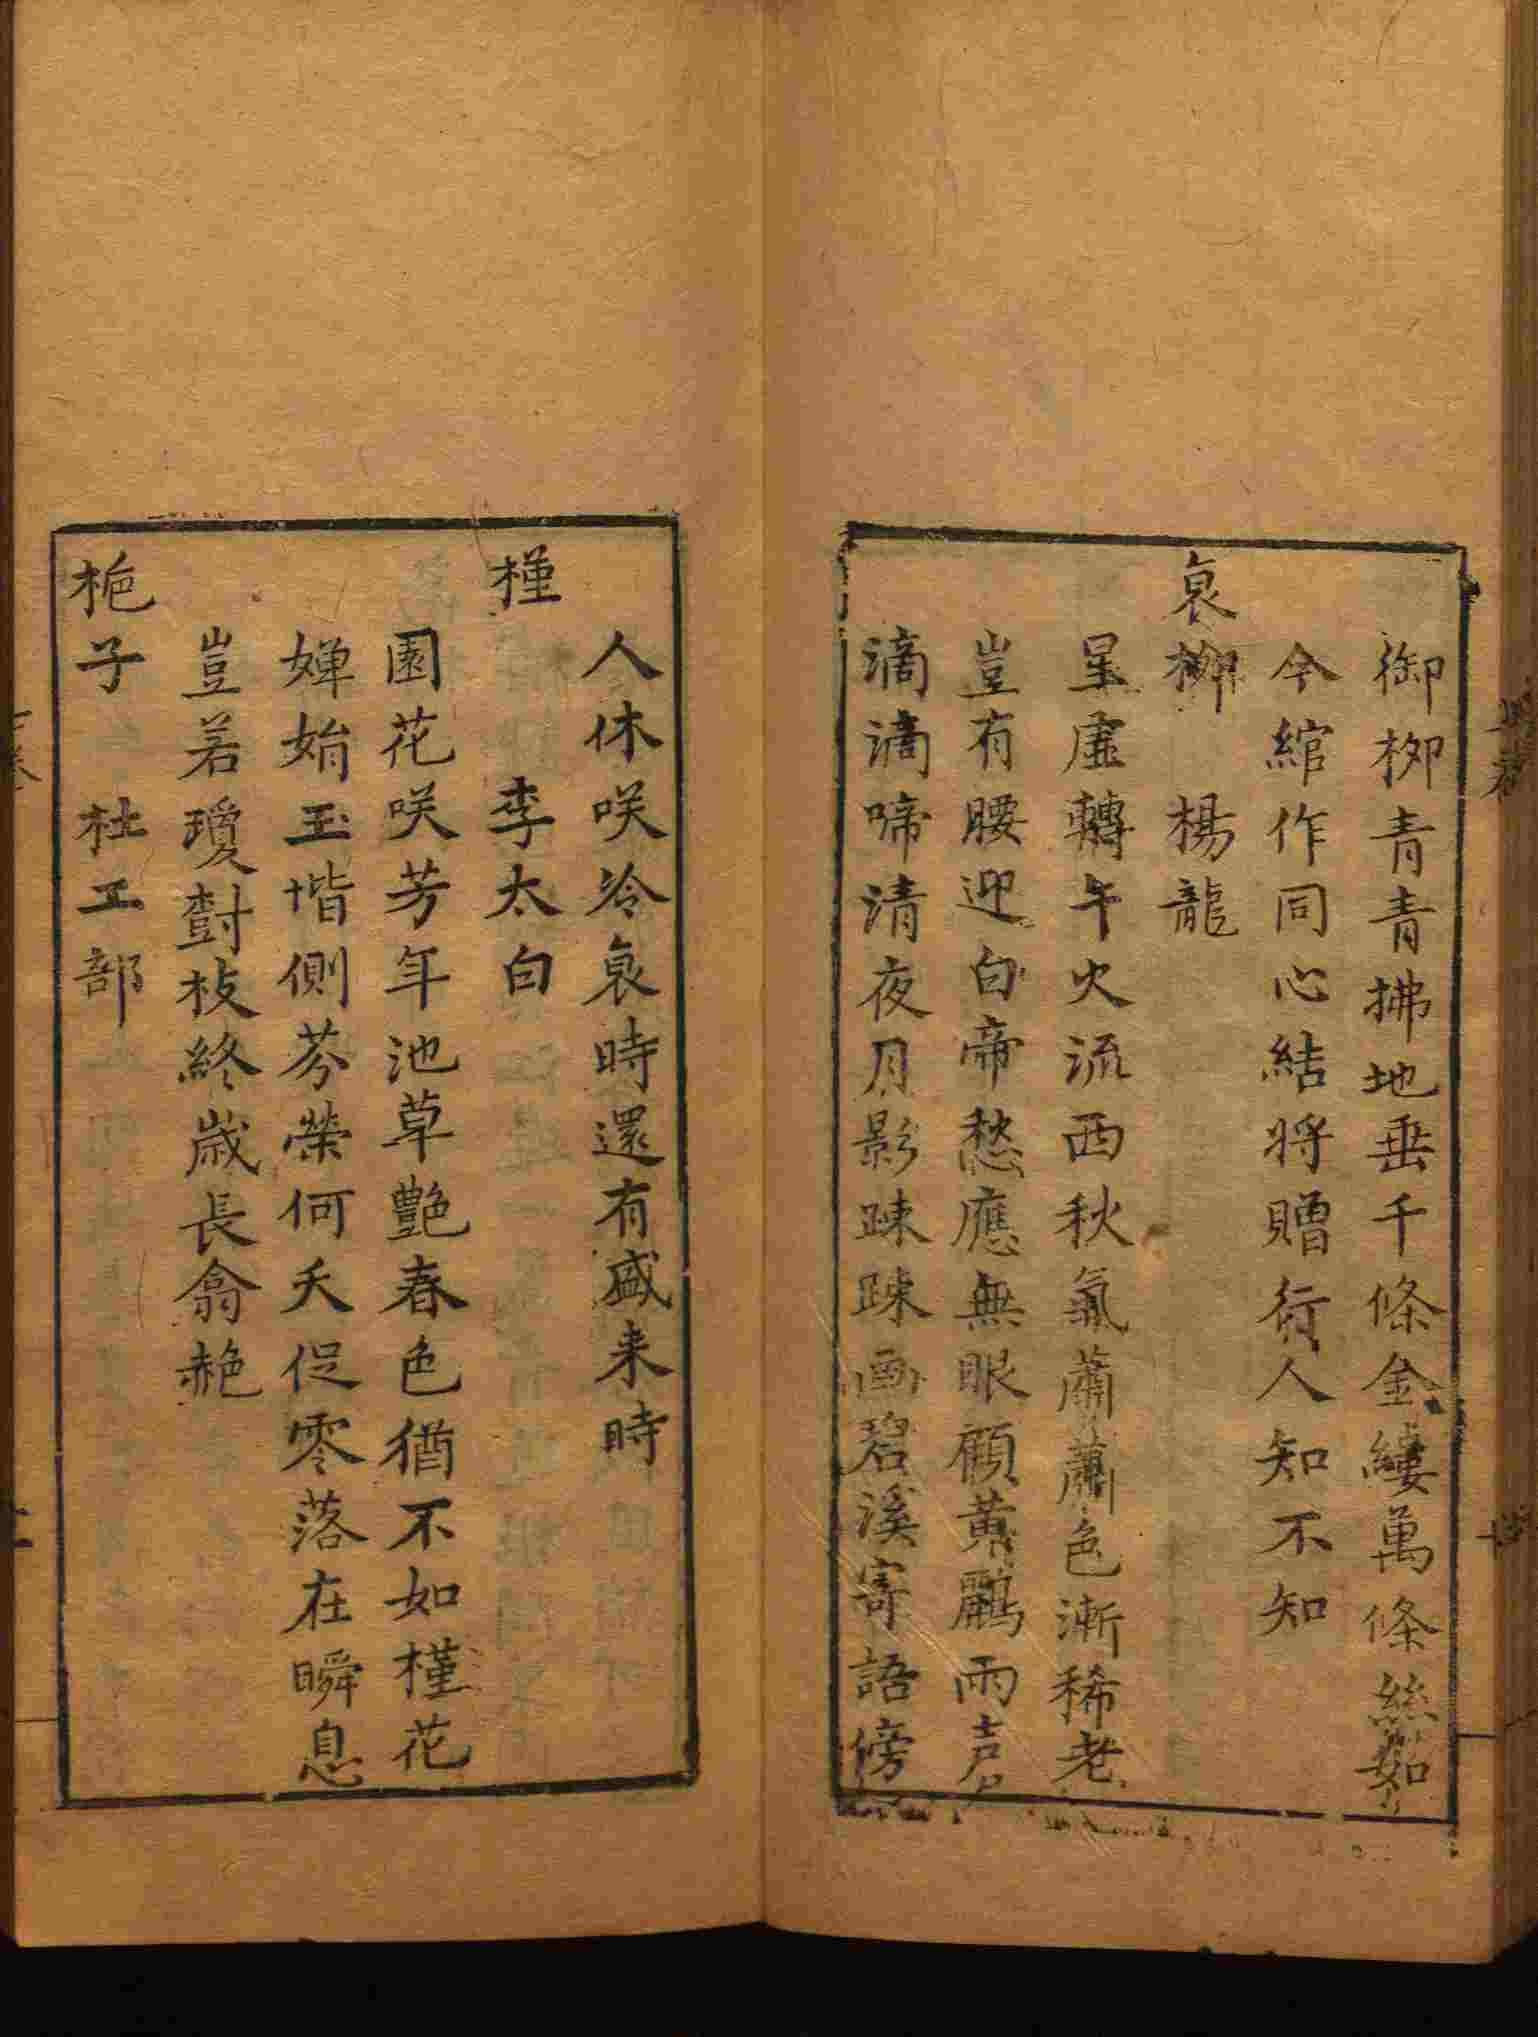 御柳青青拂地垂千條金縷萬條絲如
今綰作同心結將贈行人知不知
衰柳　楊龍
星虛轉午火流西秋氣蕭蕭色漸稀老
豈有腰迎白帝愁應無眼顧黃鸝雨声
滴滴啼清夜月影踈踈画碧溪寄語傍
人休咲冷衰時還有盛来時
槿　李太白
園花咲芳年池草艷春色猶不如槿花
嬋娟玉堦側芬榮何夭促零落在瞬息
豈若瓊樹枝終歲長翕赩
梔子　杜工部